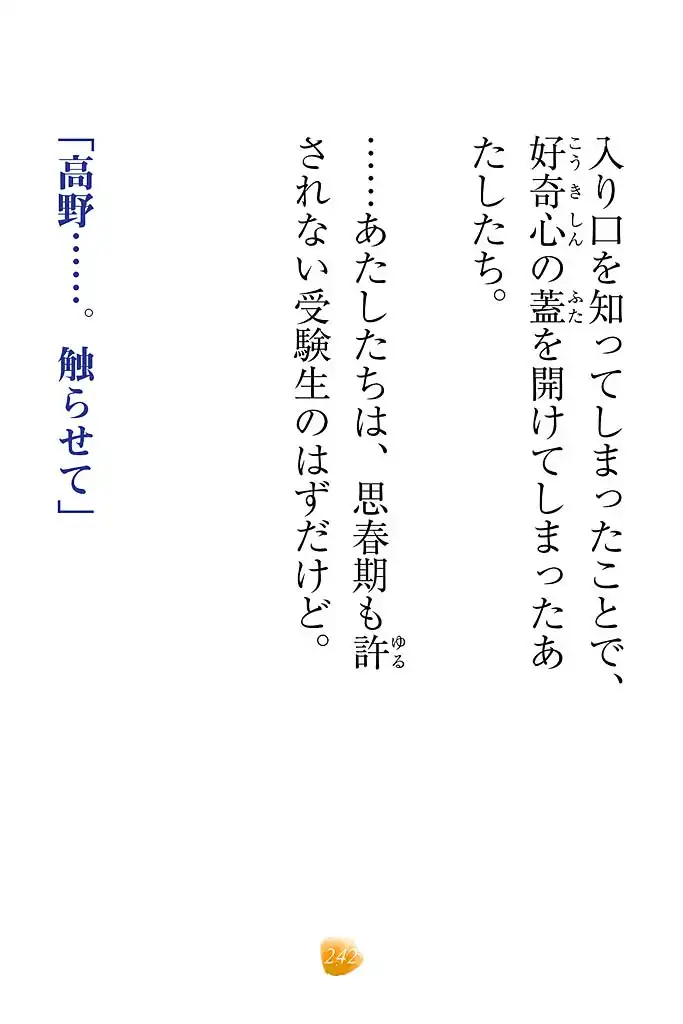 入り口を知ってしまったことで、
好奇心の蓋を開けてしまったあ
たしたち。
……あたしたちは、思春期も許
されない受験生のはずだけど。
「高野……。触らせて」
242